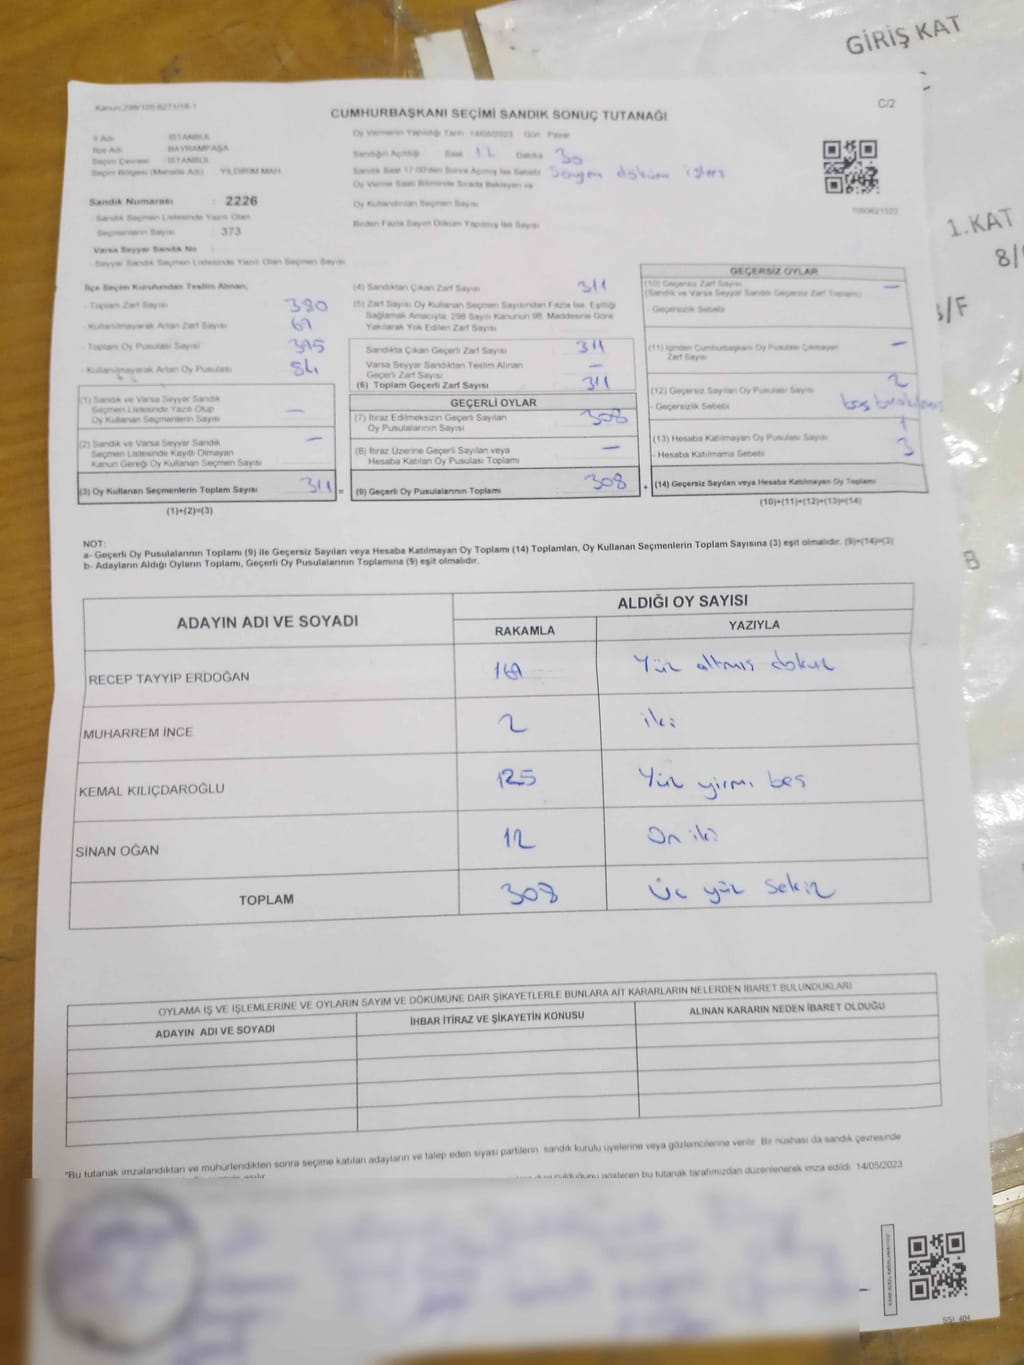 GİRİŞ KAT
1.KAT
8/
/F
B
C/2
CUMHURBAŞKANI SEÇİMİ SANDIK SONUÇ TUTANAĞI
İl Adı İSTANBUL
İlçe Adı BAYRAMPAŞA
Seçim Çevresi İSTANBUL
Seçim Bölgesi (Mahalle Adı) YILDIRIM MAH
Sandık Numarası : 2226
Sandık Seçmen Listesinde Yazılı Olan
Seçmenlerin Sayısı 373
Varsa Seyyar Sandık No
Seyyar Sandık Seçmen Listesinde Yazılı Olan Seçmen Sayısı
Oy Vermenin Yapıldığı Tarih 14/05/2023 Gün Pazar
Sandığın Açıldığı Saat Dakika 30
Sandık Saat 17:00'den Sonra Açılmış İse Sebebi döküm işlemi
Oy Verme Saati Bitiminde Sırada Bekleyen ve
Oy Kullandırılan Seçmen Sayısı
Birden Fazla Sayım Döküm Yapılmış İse Sayısı
İlçe Seçim Kurulundan Teslim Alınan;
Toplam Zarf Sayısı 380
Kullanılmayarak Artan Zarf Sayısı 69
Toplam Oy Pusulası Sayısı 395
Kullanılmayarak Artan Oy Pusulası 84
(1) Sandık ve Varsa Seyyar Sandık
Seçmen Listesinde Yazılı Olup
Oy Kullanan Seçmenlerin Sayısı —
(2) Sandık ve Varsa Seyyar Sandık
Seçmen Listesinde Kayıtlı Olmayan
Kanun Gereği Oy Kullanan Seçmen Sayısı —
(3) Oy Kullanan Seçmenlerin Toplam Sayısı 311 =
(1)+(2)=(3)
(4) Sandıktan Çıkan Zarf Sayısı 311
(5) Zarf Sayısı Oy Kullanan Seçmen Sayısından Fazla İse, Eşitliği
Sağlamak Amacıyla, 298 Sayılı Kanunun 98. Maddesine Göre
Yakılarak Yok Edilen Zarf Sayısı —
Sandıkta Çıkan Geçerli Zarf Sayısı 311
Varsa Seyyar Sandıktan Teslim Alınan
Geçerli Zarf Sayısı
(6) Toplam Geçerli Zarf Sayısı 311
GEÇERLİ OYLAR
(7) İtiraz Edilmeksizin Geçerli Sayılan
Oy Pusulalarının Sayısı 308
(8) İtiraz Üzerine Geçerli Sayılan veya
Hesaba Katılan Oy Pusulası Toplamı —
(9) Geçerli Oy Pusulalarının Toplamı 308 +
GEÇERSİZ OYLAR
(10) Geçersiz Zarf Sayısı —
(Sandık ve Varsa Seyyar Sandık Geçersiz Zarf Toplamı)
- Geçersizlik Sebebi
(11) İçinden Cumhurbaşkanı Oy Pusulası Çıkmayan —
Zarf Sayısı
(12) Geçersiz Sayılan Oy Pusulası Sayısı 2
- Geçersizlik Sebebi boş
1
(13) Hesaba Katılmayan Oy Pusulası Sayısı 3
- Hesaba Katılmama Sebebi
(14) Geçersiz Sayılan veya Hesaba Katılmayan Oy Toplamı
(10)+(11)+(12)+(13)=(14)
NOT:
a- Geçerli Oy Pusulalarının Toplamı (9) ile Geçersiz Sayılan veya Hesaba Katılmayan Oy Toplamı (14) Toplamları, Oy Kullanan Seçmenlerin Toplam Sayısına (3) eşit olmalıdır. (9)+(14)=(3)
b- Adayların Aldığı Oyların Toplamı, Geçerli Oy Pusulalarının Toplamına (9) eşit olmalıdır.
ADAYIN ADI VE SOYADI
ALDIĞI OY SAYISI
RAKAMLA YAZIYLA
RECEP TAYYİP ERDOĞAN 169 Yüz altmış dokuz
MUHARREM İNCE 2 iki
KEMAL KILIÇDAROĞLU 125 Yüz yirmi beş
SİNAN OĞAN 12 On iki
TOPLAM 308 Üç yüz sekiz
OYLAMA İŞ VE İŞLEMLERİNE VE OYLARIN SAYIM VE DÖKÜMÜNE DAİR ŞİKAYETLERLE BUNLARA AİT KARARLARIN NELERDEN İBARET BULUNDUKLARI
ADAYIN ADI VE SOYADI İHBAR İTİRAZ VE ŞİKAYETİN KONUSU ALINAN KARARIN NEDEN İBARET OLDUĞU
*Bu tutanak imzalandıktan ve mühürlendikten sonra seçime katılan adayların ve talep eden siyasi partilerin sandık kurulu üyelerine veya gözlemcilerine verilir. Bir nüshası da sandık çevresinde
gösteren bu tutanak tarafımızdan düzenlenerek imza edildi. 14/05/2023